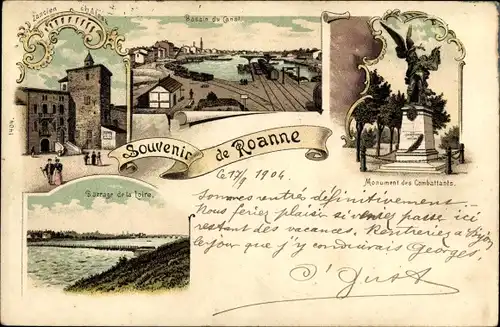 Ancien Château
Bassin du Canal
1404.
Souvenir de Roanne
Monument des Combattants.
Barrage de la Loire.
Ce 17/9 1904
Sommes rentré définitivement.
Nous feriez plaisir si venez passer ici
restant des vacances. Rentreriez à Dijon
le jour que j'y conduirais Georges.